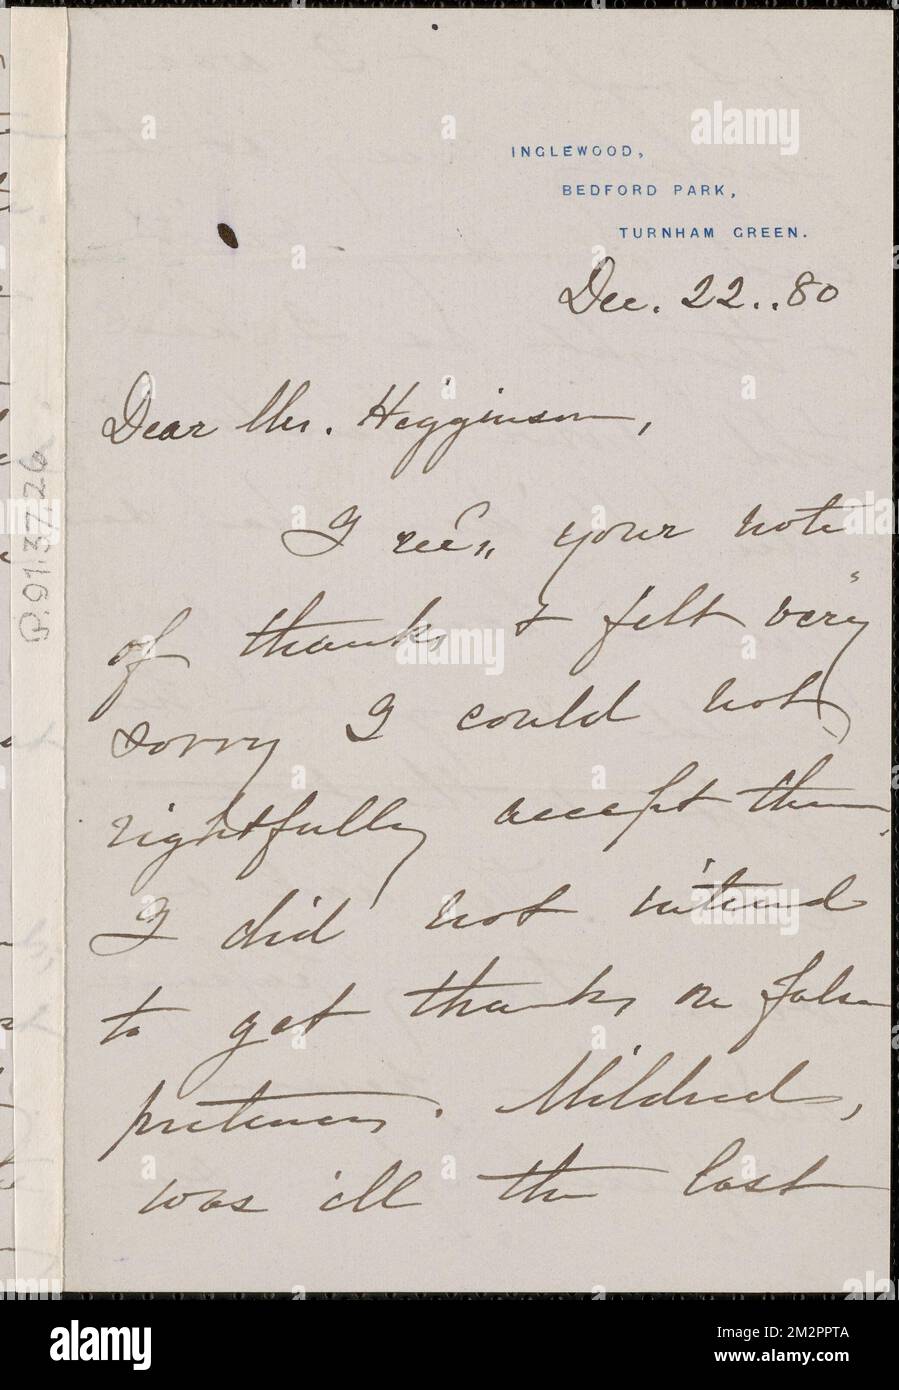 INGLEWOOD,
BEDFORD PARK,
TURNHAM GREEN.
Dec. 22..80
Dear Mr. Higginson,
I rec'd your note
of thanks & felt very
sorry I could not
rightfully accept them.
I did not intend
to get thanks on false
pretences. Mildred,
was ill the last
P.91.37.26
alamy
Image ID: 2M2PPTA
www.alamy.com